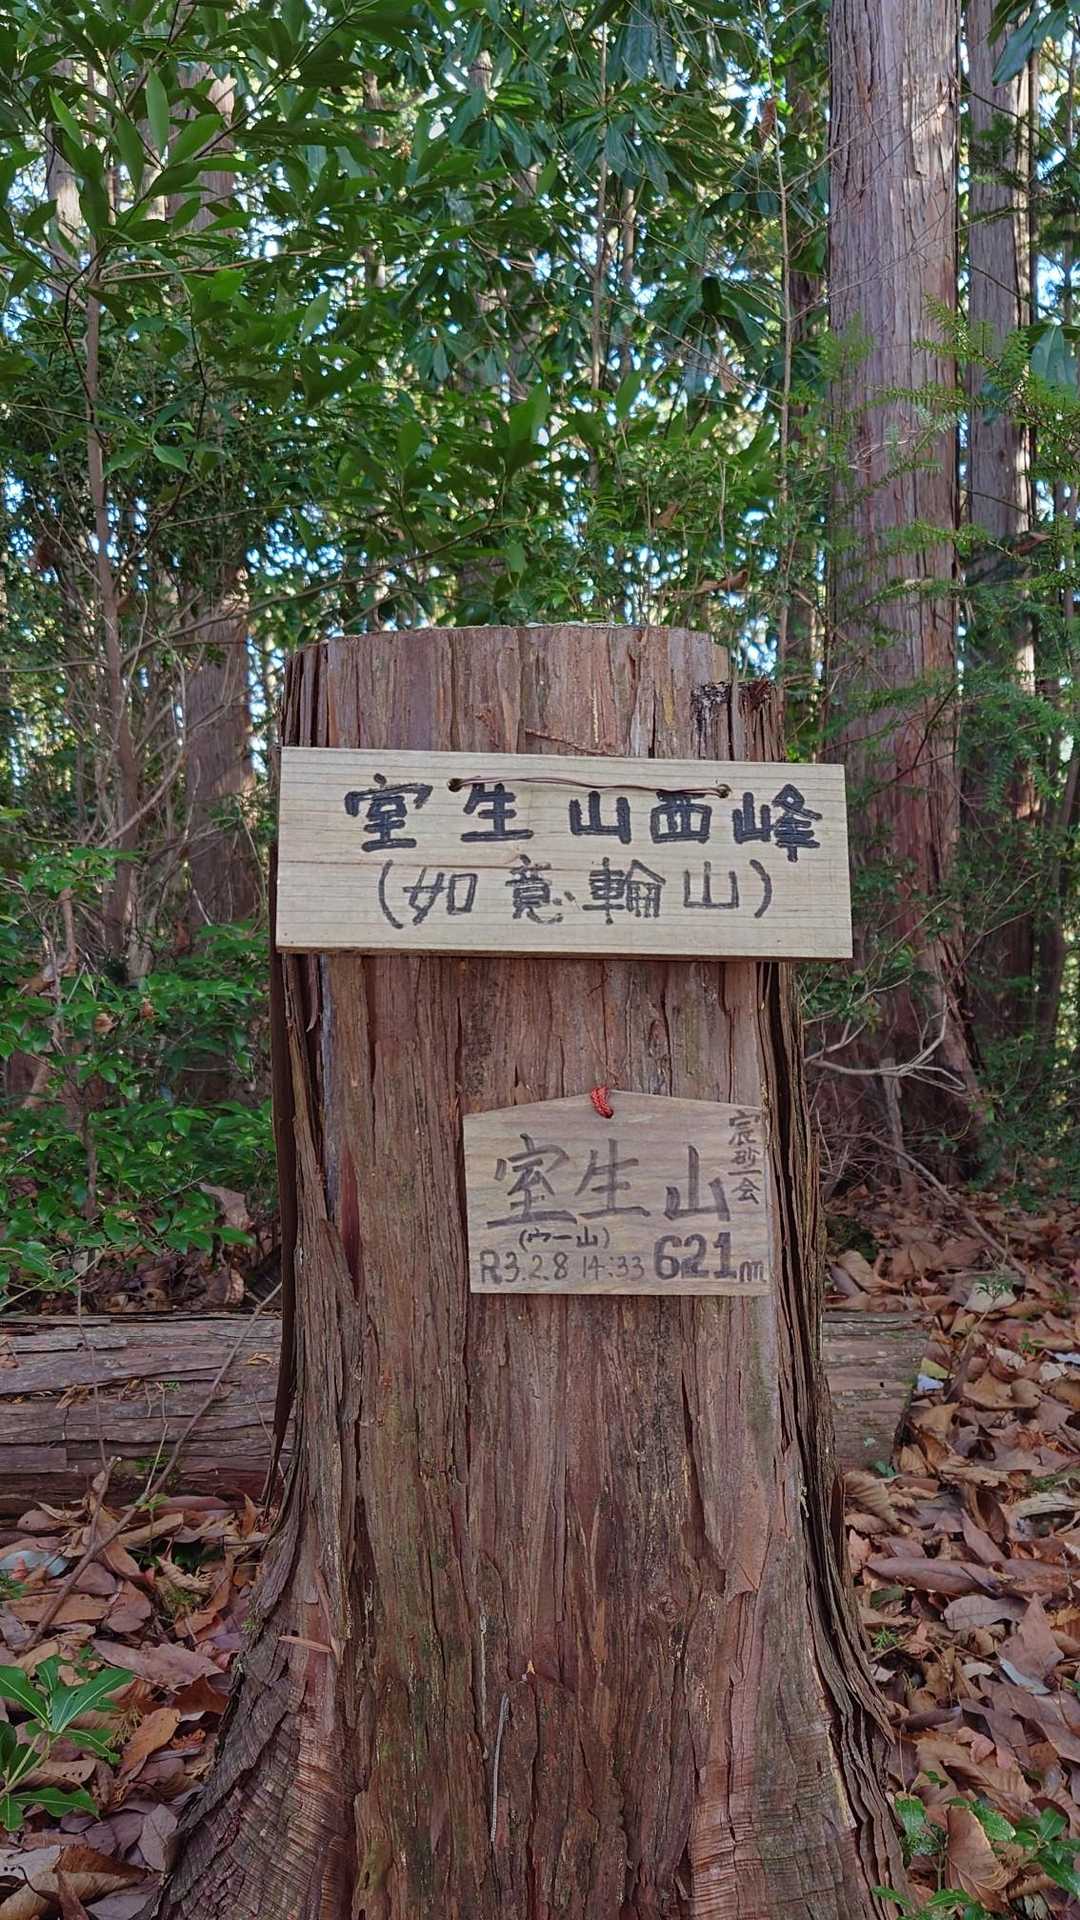 室生山西峰
(如意輪山)
室生山
宸砂会
(ウー山)
R3.2.8 14:33 621m